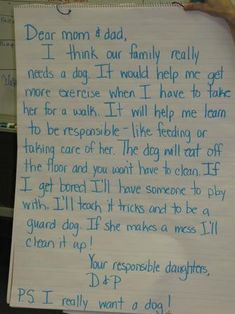 Dear mom & dad,
I think our family really
needs a dog. It would help me get
more exercise when I have to take
her for a walk. It will help me learn
to be responsible - like feeding or
taking care of her. The dog will eat off
the floor and you won't have to clean. If
I get bored I'll have someone to play
with. I'll teach it tricks and to be a
guard dog. If she makes a mess I'll
clean it up!
Your responsible daughters,
D & P
P.S. I really want a dog!